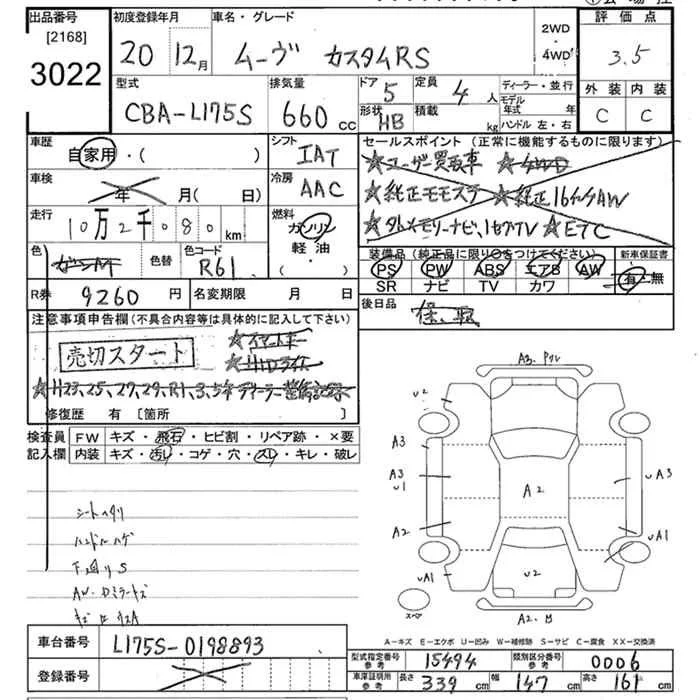 出品番号 [2168] 3022
初度登録年月 20 12月
車名・グレード ムーヴ カスタムRS
2WD・4WD
評価点 3.5
外装 内装
C C
型式 CBA-L175S
排気量 660 cc
ドア 5
形状 HB
定員 4 人
積載 kg
ディーラー・並行
モデル年式 年式
ハンドル 左・右
車歴 自家用・( )
シフト IAT
車検 年 月( 日)
冷房 AAC
走行 10万2千080km
燃料 ガソリン 軽油・
色 色替 色コード R61
R券 9260円 名変期限 月 日
セールスポイント(正常に機能するものに限ります)
★ユーザー買取車 ★4WD
★純正モモステ ★純正16インチAW
★ETC
装備品(純正品に限り○をつけてください) 新車保証書
PS PW ABS エアB AW 有・無
SR ナビ TV カワ
後日品 保、取
注意事項申告欄(不具合内容等は具体的に記入して下さい)
売切スタート
★スマートキー
★HIDライト
★H23、25、27、29、R1、3、5年ディーラー整備記録
修復歴 有 [箇所 ]
検査員記入欄
FW キズ・飛石・ヒビ割・リペア跡・×要
内装 キズ・汚レ・コゲ・穴・スレ・キレ・破レ
シートヘタリ
ハンドルハゲ
下回りS
AW・ドアミラーキズ
A3.
U2
A3
A3
U1
A2
UA1
A2
UA3
UA1
U2
A2.
スペア
A-キズ E-エクボ U-凹み W-補修跡 S-サビ C-腐食 XX-交換済
車台番号 L175S-0198893
登録番号
型式指定番号 参考 15494 類別区分番号 参考 0006
車庫証明用 参考 長さ 339 cm 幅 147 cm 高さ 161 cm